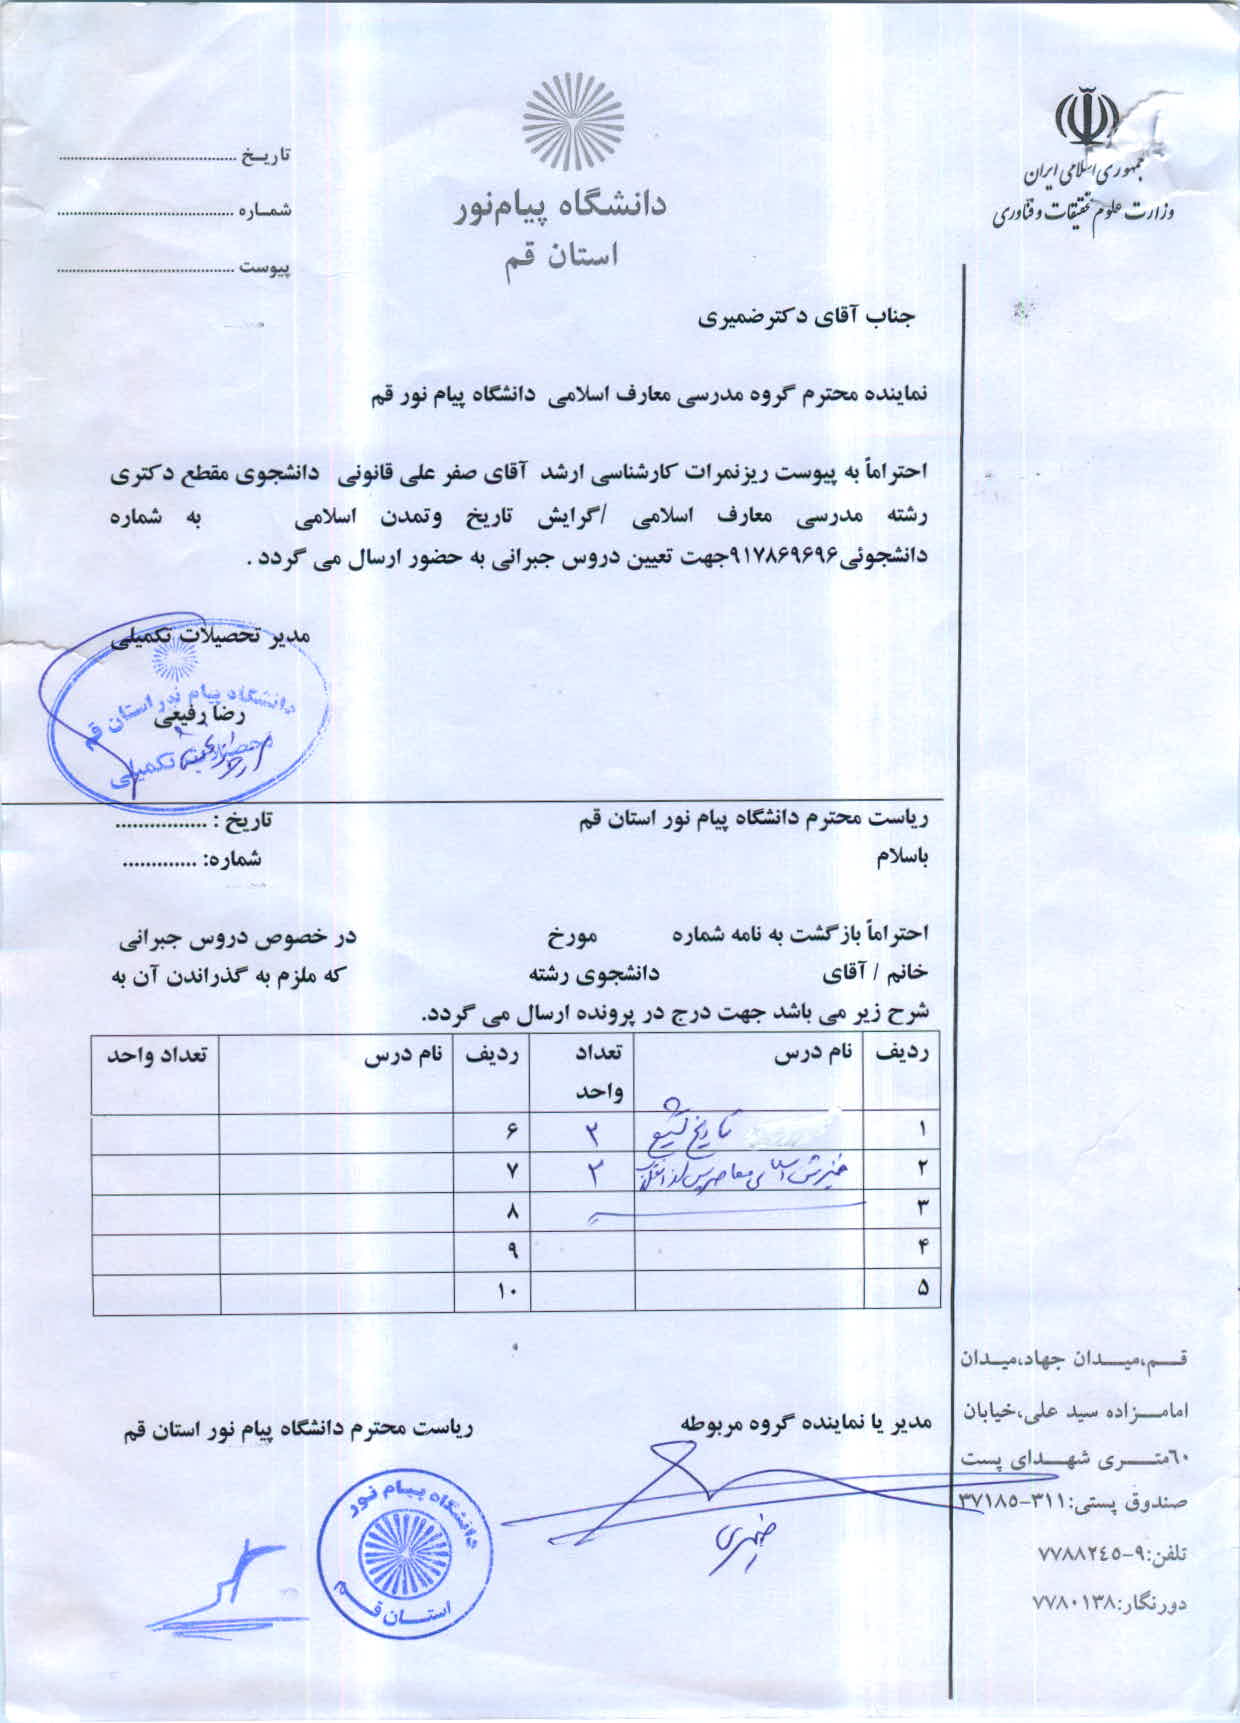 جمهوری اسلامی ایران
وزارت علوم تحقیقات و فناوری
دانشگاه پیام‌نور
استان قم
تاریـخ ......................................
شمـاره ......................................
پیوست ......................................
جناب آقای دکترضمیری
نماینده محترم گروه مدرسی معارف اسلامی دانشگاه پیام نور قم
احتراماً به پیوست ریزنمرات کارشناسی ارشد آقای صفر علی قانونی دانشجوی مقطع دکتری
رشته مدرسی معارف اسلامی /گرایش تاریخ وتمدن اسلامی به شماره
دانشجوئی۹۱۷۸۶۹۶۹۶جهت تعیین دروس جبرانی به حضور ارسال می گردد .
مدیر تحصیلات تکمیلی
دانشگاه پیام نور استان قم
رضا رفیعی
تحصیلات تکمیلی
ریاست محترم دانشگاه پیام نور استان قم
تاریخ : ................
باسلام
شماره: .............
احتراماً بازگشت به نامه شماره مورخ در خصوص دروس جبرانی
خانم / آقای دانشجوی رشته که ملزم به گذراندن آن به
شرح زیر می باشد جهت درج در پرونده ارسال می گردد.
ردیف نام درس تعداد واحد ردیف نام درس تعداد واحد
۱ تاریخ تشیع ۲ ۶
۲ اسلامی معاصر پس از ۲ ۷
۳ ۸
۴ ۹
۵ ۱۰
مدیر یا نماینده گروه مربوطه
ریاست محترم دانشگاه پیام نور استان قم
ضمیری
دانشگاه پیام نور
استـان قـم
قـــم،میـــدان جهاد،میـدان
امامـــزاده سید علی،خیابان
٦٠متـــری شهـــدای پست
صندوق پستی:٣١١-٣٧١٨٥
تلفن:٩-٧٧٨٨٢٤٥
دورنگار:٧٧٨٠١٣٨